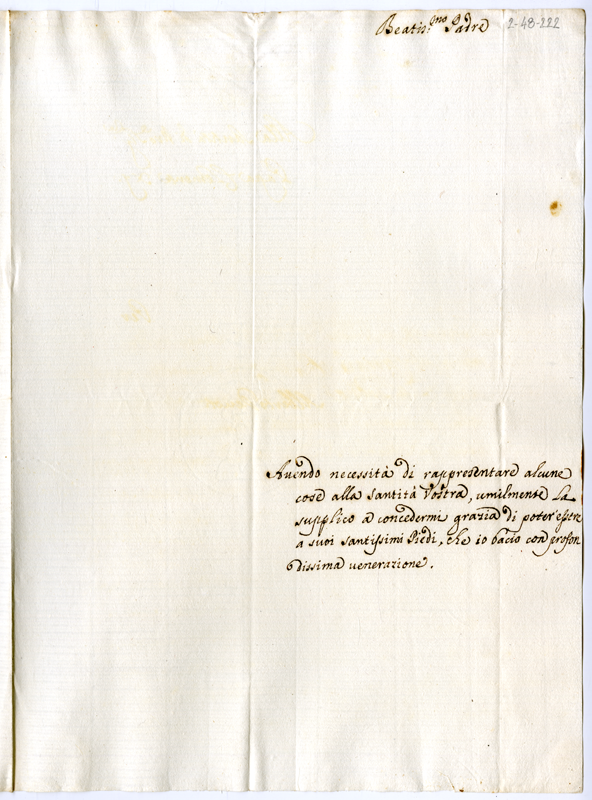 Beatis.mo Padre
2-48-222
Auendo necessità di rappresentare alcune
cose alla Santità Vostra, umilmente La
supplico a concedermi grazia di poter'essere
a suoi santissimi Piedi, che io bacio con profon
dissima uenerazione.